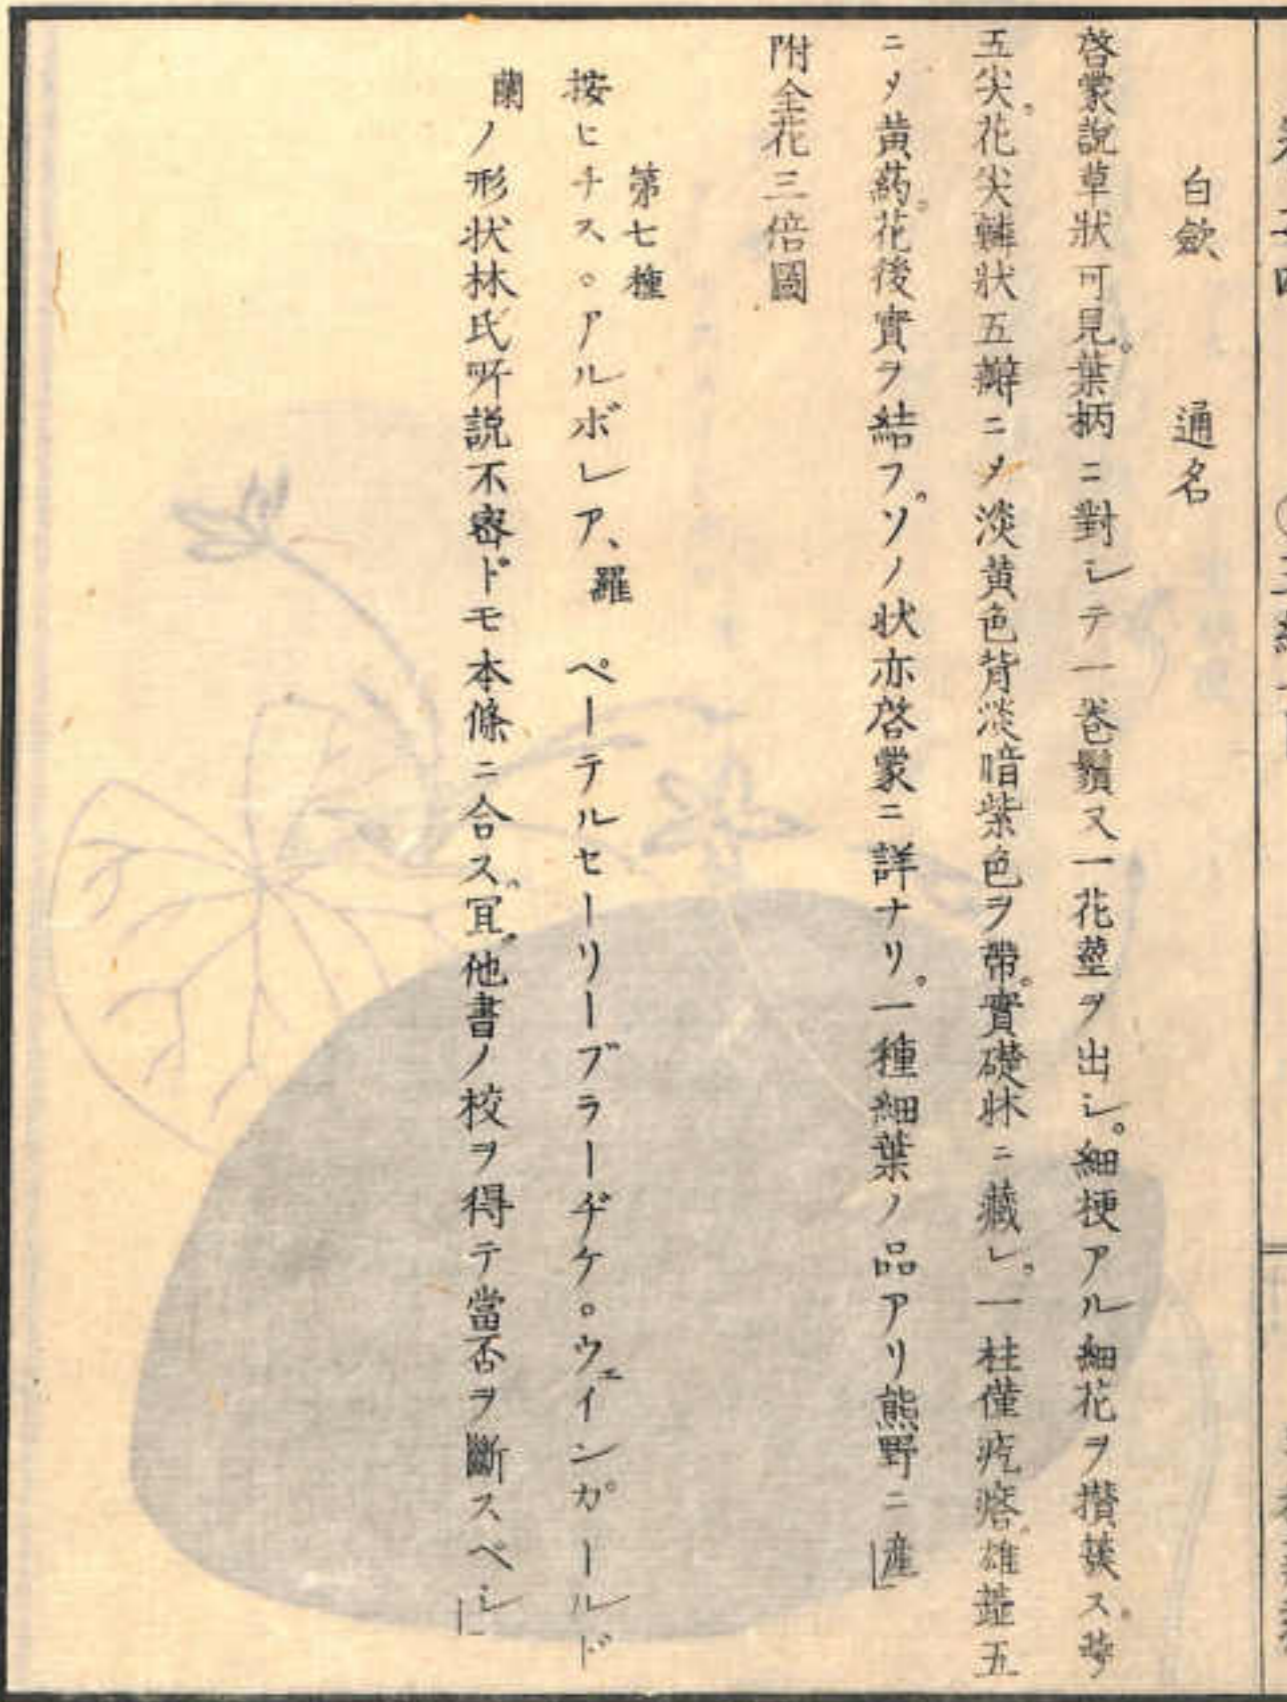 白歛　通名
啓蒙說草狀可見。葉柄ニ對シテ一巻鬚又一花莖ヲ出シ。細梗アル細花ヲ攅簇ス。萼
五尖。花尖轉狀五瓣ニメ淡黄色背淡暗紫色ヲ帶。實礎牀ニ藏レ。一柱僅疙瘩。雄蕋五
ニメ黄葯。花後實ヲ結フ。ソノ状亦啓蒙ニ詳ナリ。一種細葉ノ品アリ熊野ニ産
附全花三倍圖
第七種
按ヒチス。アルボレア、羅 ペーテルセーリーブラーヂケ。ウェインガールド
蘭ノ形状林氏所説不審ドモ本條ニ合ス。冝。他書ノ校ヲ得テ當否ヲ斷スベシ